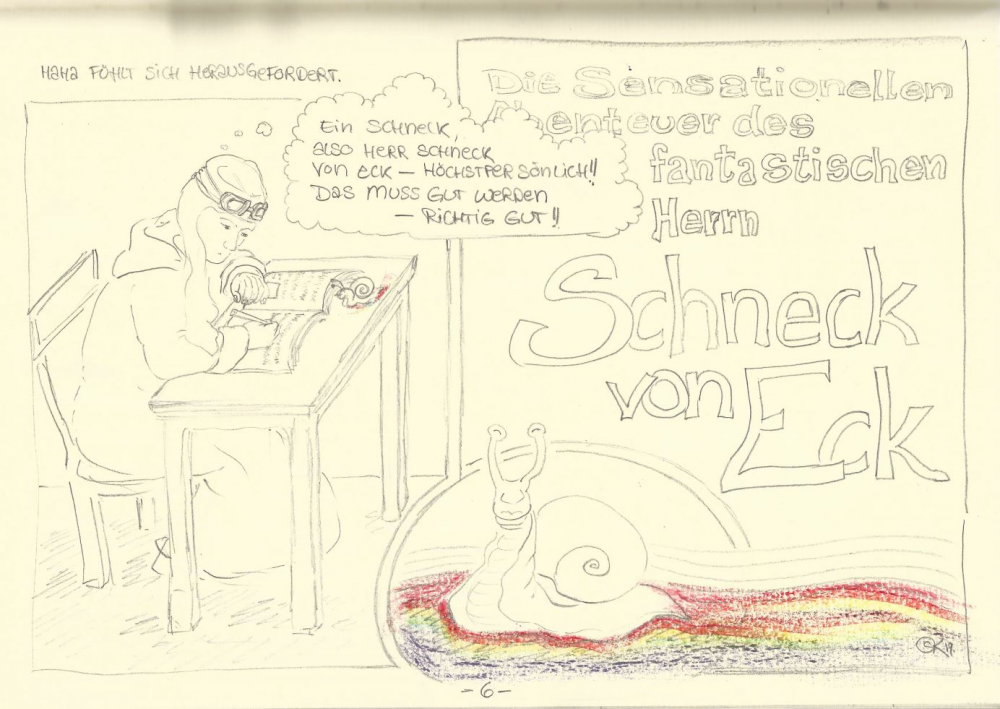 HaHa FÜHLT SICH HERAUSGEFORDERT.
Ein SCHNECK,
also HERR SCHNECK
von ECK – HÖCHSTPERSÖNLICH!!
Das MUSS GUT WERDEN
– RICHTIG GUT!!
Die Sensationellen
Abenteuer des
fantastischen
Herrn
Schneck
von Eck
- 6 -